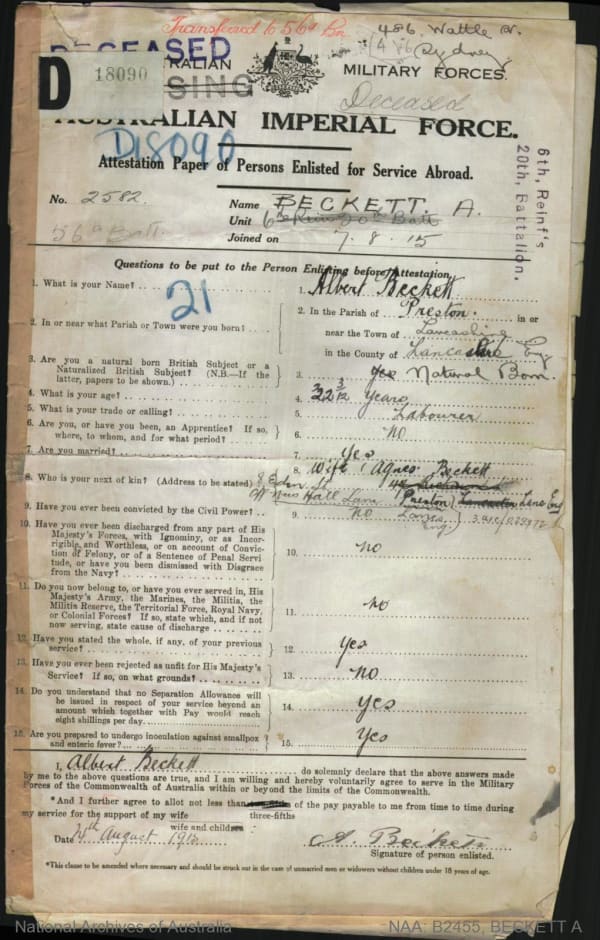 Transferred to 56th Bn
486 Wattle St.
Sydney
DECEASED
D
18090
SING
RALIAN MILITARY FORCES.
Deceased
AUSTRALIAN IMPERIAL FORCE.
D18090
Attestation Paper of Persons Enlisted for Service Abroad.
6th, Reinf's
20th, Battalion.
No. 2582.
Name BECKETT. A.
Unit 6th Rein 20th Batt
56th Batt.
Joined on 7.8.15
Questions to be put to the Person Enlisting before Attestation.
21
1. What is your Name?
1. Albert Beckett
2. In or near what Parish or Town were you born?
2. In the Parish of Preston. in or
near the Town of Lancashire
in the County of Lancashire Eng
3. Are you a natural born British Subject or a
Naturalized British Subject? (N.B.—If the
latter, papers to be shown.)
3. yes Natural Born.
4. What is your age?
4. 22 3/12 years
5. What is your trade or calling?
5. Labourer
6. Are you, or have you been, an Apprentice? If so,
where, to whom, and for what period?
6. No
7. Are you married?
7. Yes
8. Who is your next of kin? (Address to be stated)
8. Wife Agnes Beckett
8 Eden St
Hall Lane Preston Lancs Eng
9. Have you ever been convicted by the Civil Power?
9. No
10. Have you ever been discharged from any part of His
Majesty's Forces, with Ignominy, or as Incor-
rigible and Worthless, or on account of Convic-
tion of Felony, or of a Sentence of Penal Servi-
tude, or have you been dismissed with Disgrace
from the Navy?
10. no
11. Do you now belong to, or have you ever served in, His
Majesty's Army, the Marines, the Militia, the
Militia Reserve, the Territorial Force, Royal Navy,
or Colonial Forces? If so, state which, and if not
now serving, state cause of discharge
11. no
12. Have you stated the whole, if any, of your previous
service?
12. Yes
13. Have you ever been rejected as unfit for His Majesty's
Service? If so, on what grounds?
13. no
14. Do you understand that no Separation Allowance will
be issued in respect of your service beyond an
amount which together with Pay would reach
eight shillings per day.
14. yes
15. Are you prepared to undergo inoculation against smallpox
and enteric fever?
15. Yes
I, Albert Beckett do solemnly declare that the above answers made
by me to the above questions are true, and I am willing and hereby voluntarily agree to serve in the Military
Forces of the Commonwealth of Australia within or beyond the limits of the Commonwealth.
*And I further agree to allot not less than of the pay payable to me from time to time during
three-fifths
my service for the support of my wife
wife and children
Date 24th August 1915
A. Beckett
Signature of person enlisted.
*This clause to be amended where necessary and should be struck out in the case of unmarried men or widowers without children under 18 years of age.
National Archives of Australia
NAA: B2455, BECKETT A